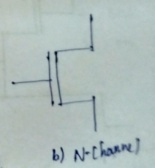 b) N-Channel